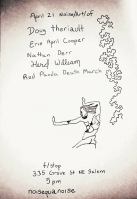 April 21 Noise/Art/of
Doug Theriault
Eric April Cooper
Nathan Derr
William
Red Panda Death March
f/stop
335 Grove St NE Salem
5 pm
noisequanoise